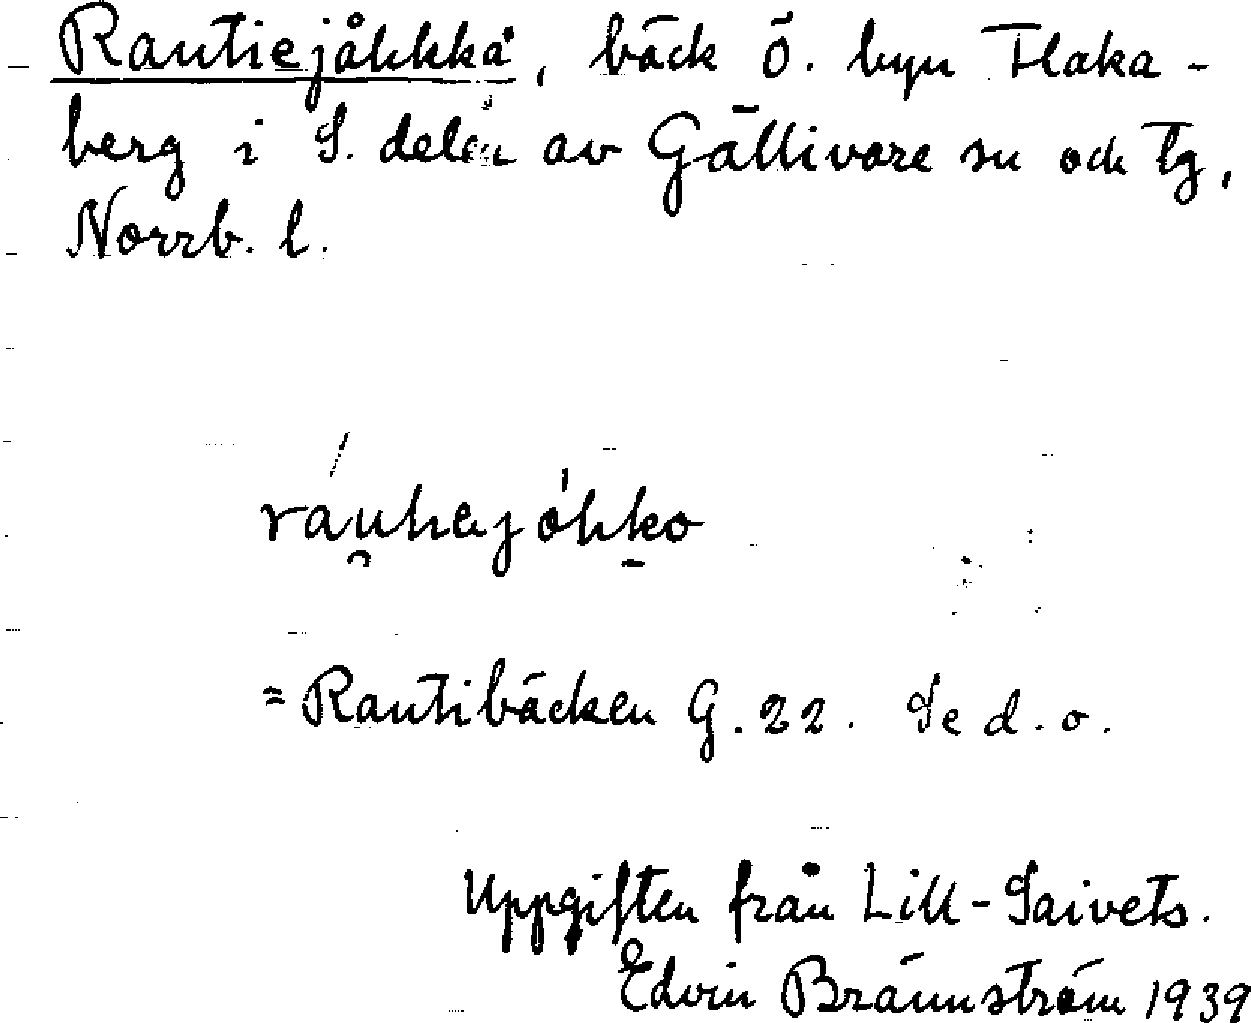 Rautiejåhkkå, bäck ö. byn Flaka-
berg i S. delen av Gällivare sn och tg,
Norrb. l.
= Rautibäcken G. 22. Se d. o.
Uppgiften från Lill-Saivets.
Edvin Brännström 1939